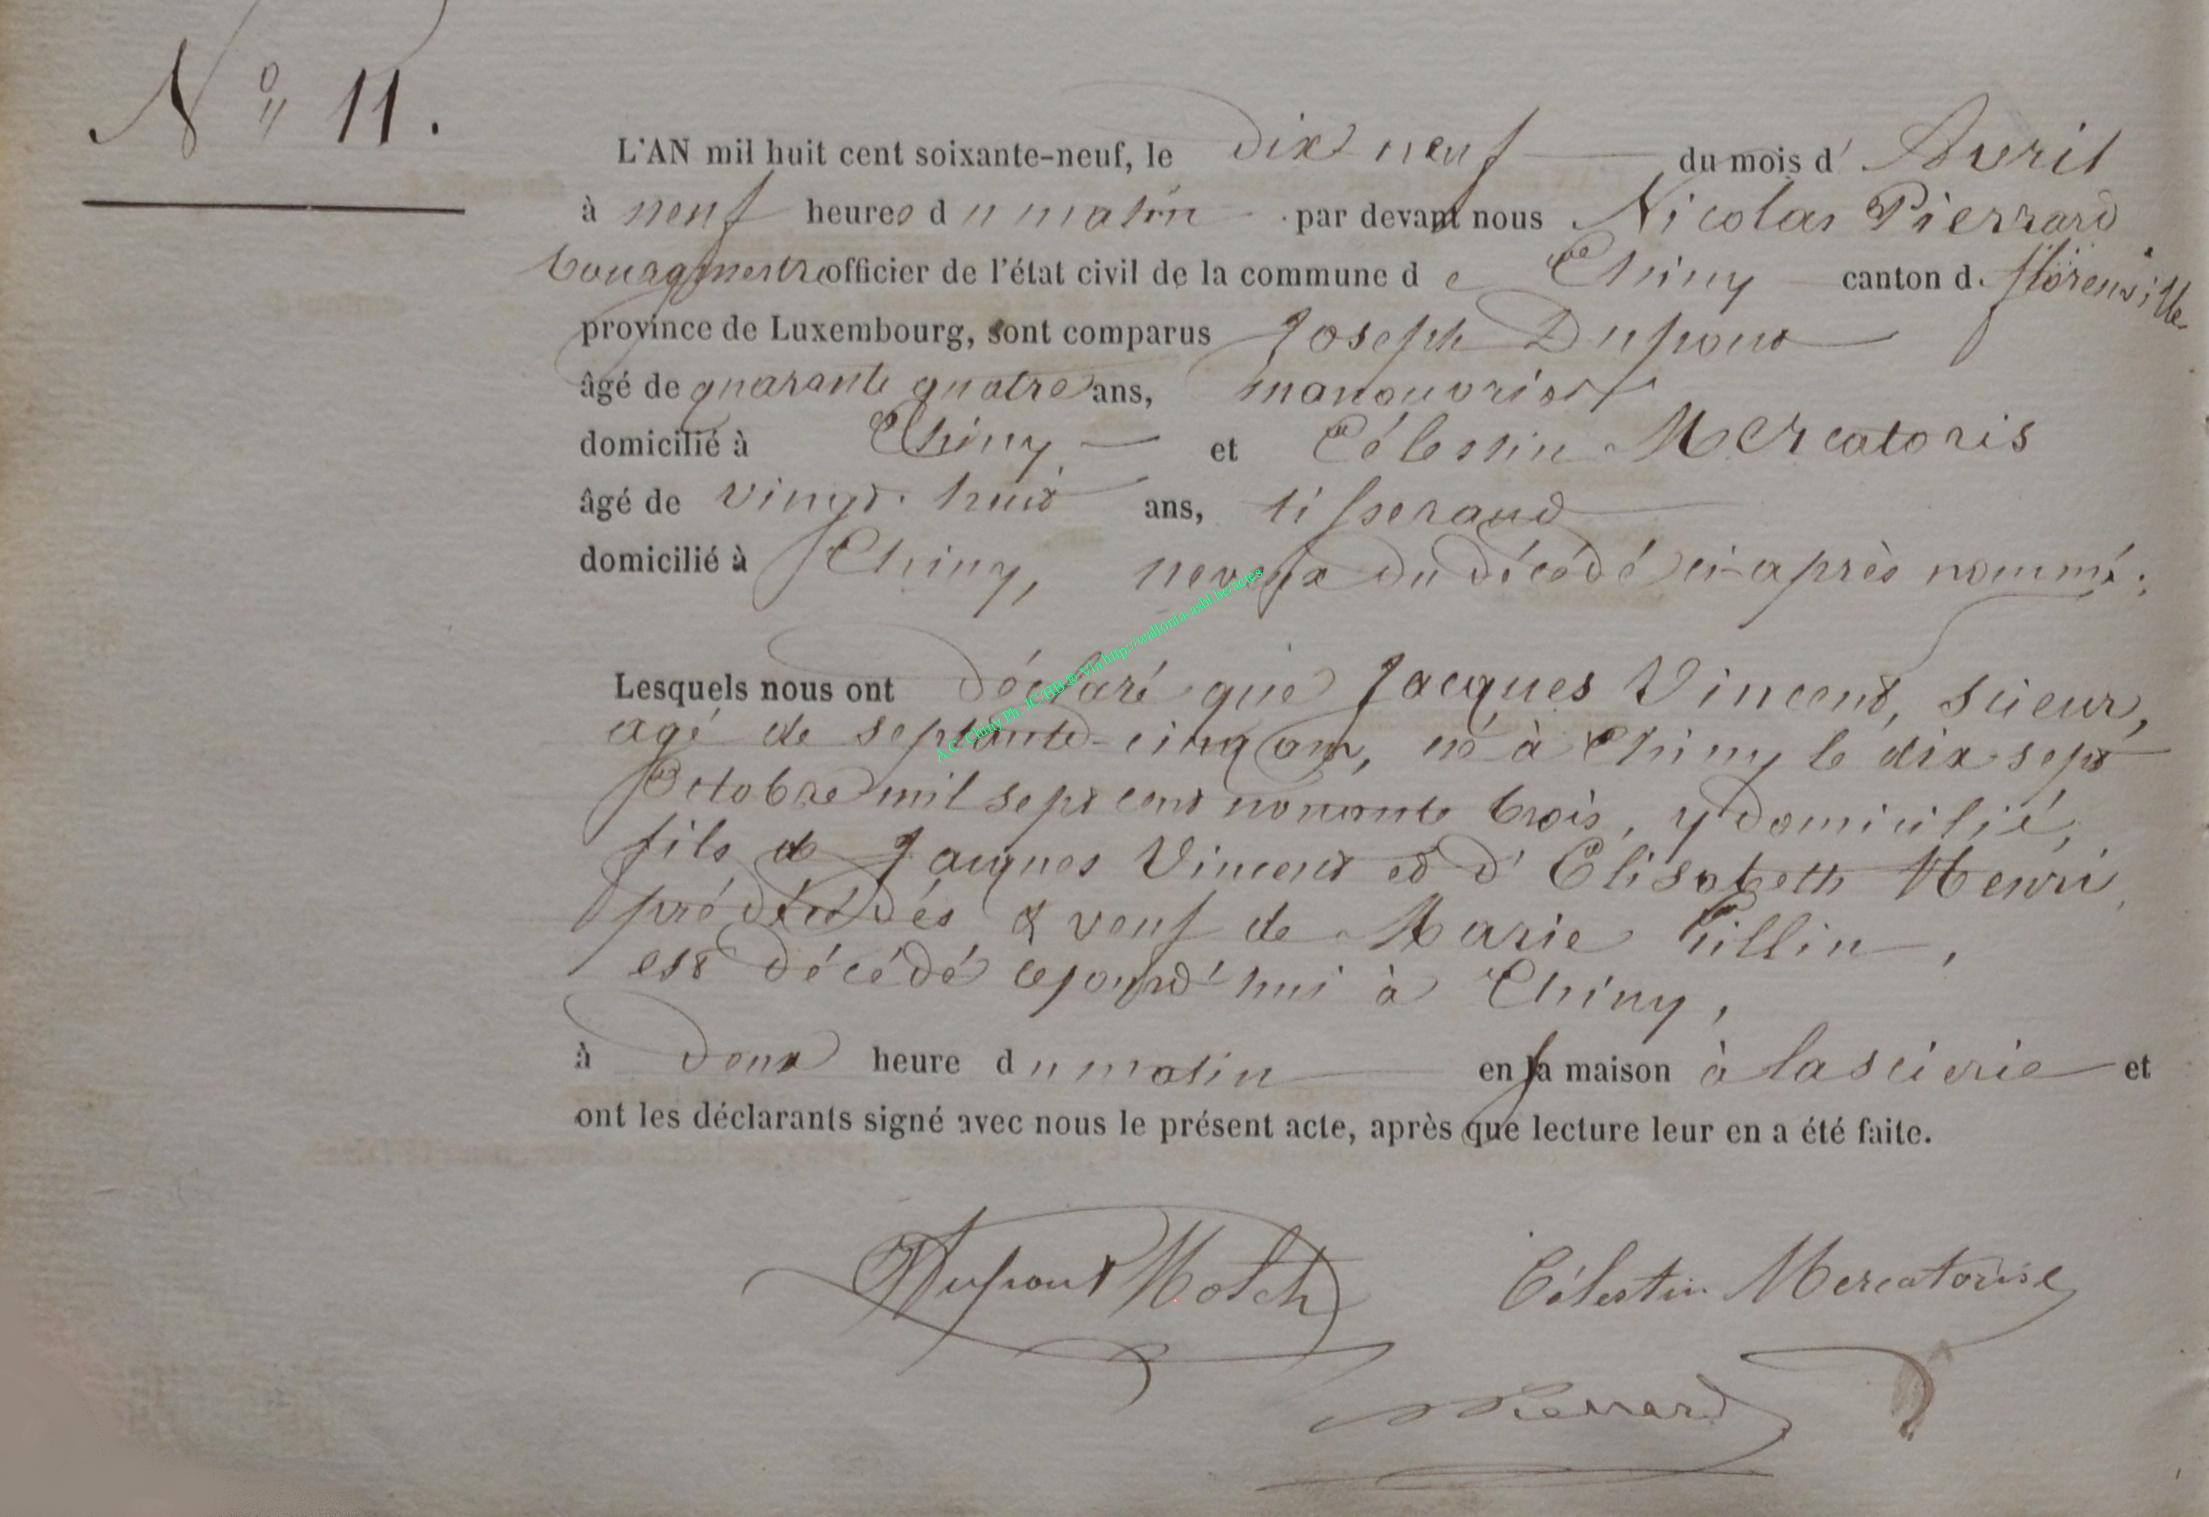 N° 11.
L'AN mil huit cent soixante-neuf, le dix neuf du mois d' Avril
à neuf heures du matin par devant nous Nicolas Pierrard
bourgmestre officier de l'état civil de la commune de Chiny canton d. florenville
province de Luxembourg, sont comparus Joseph Dupont
âgé de quarante quatre ans, manouvrier
domicilié à Chiny et Célestin Mercatoris
âgé de vingt-huit ans, tisserand
domicilié à Chiny, neveux du décédé ci-après nommé;
Lesquels nous ont déclaré que Jacques Vincent, scieur,
agé de septante-cinq ans, né à Chiny le dix sept
Octobre mil sept cent nonante trois, y domicilié,
fils de Jacques Vincent et d'Elisabeth Henri,
prédécédés & veuf de Marie Gillin,
est décédé cejourd'hui à Chiny,
à deux heure du matin en sa maison à la scierie et
ont les déclarants signé avec nous le présent acte, après que lecture leur en a été faite.
Dupont Célestin Mercatorise
Pierrard
A.C. Chiny Ph. JC/HB © Via http://wallonia-asbl.be/actes